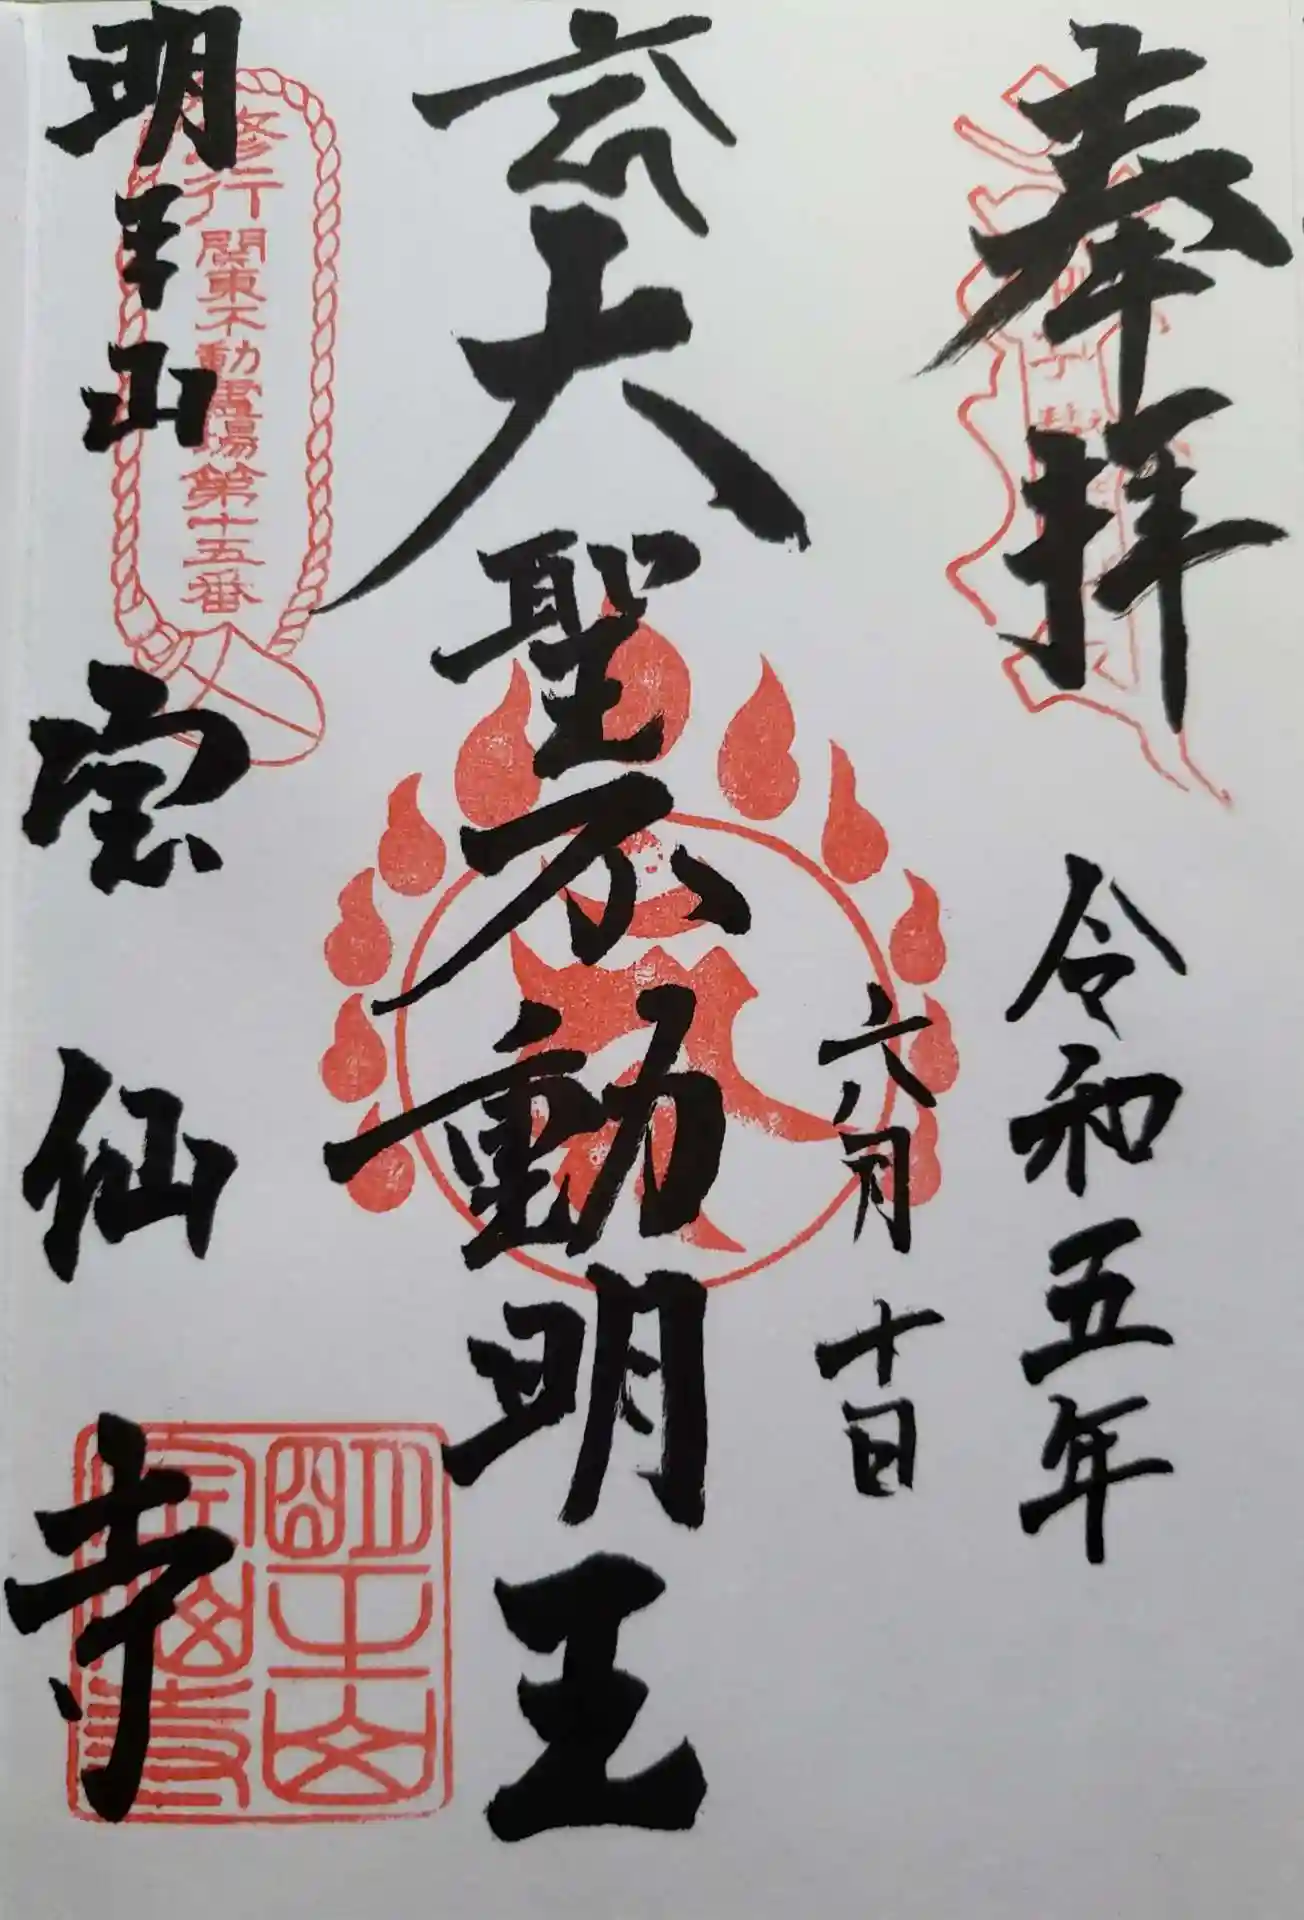 奉拝
令和五年
六月十日
大聖不動明王
修行
関東不動霊場第十五番
明王山
宝仙寺
明王山